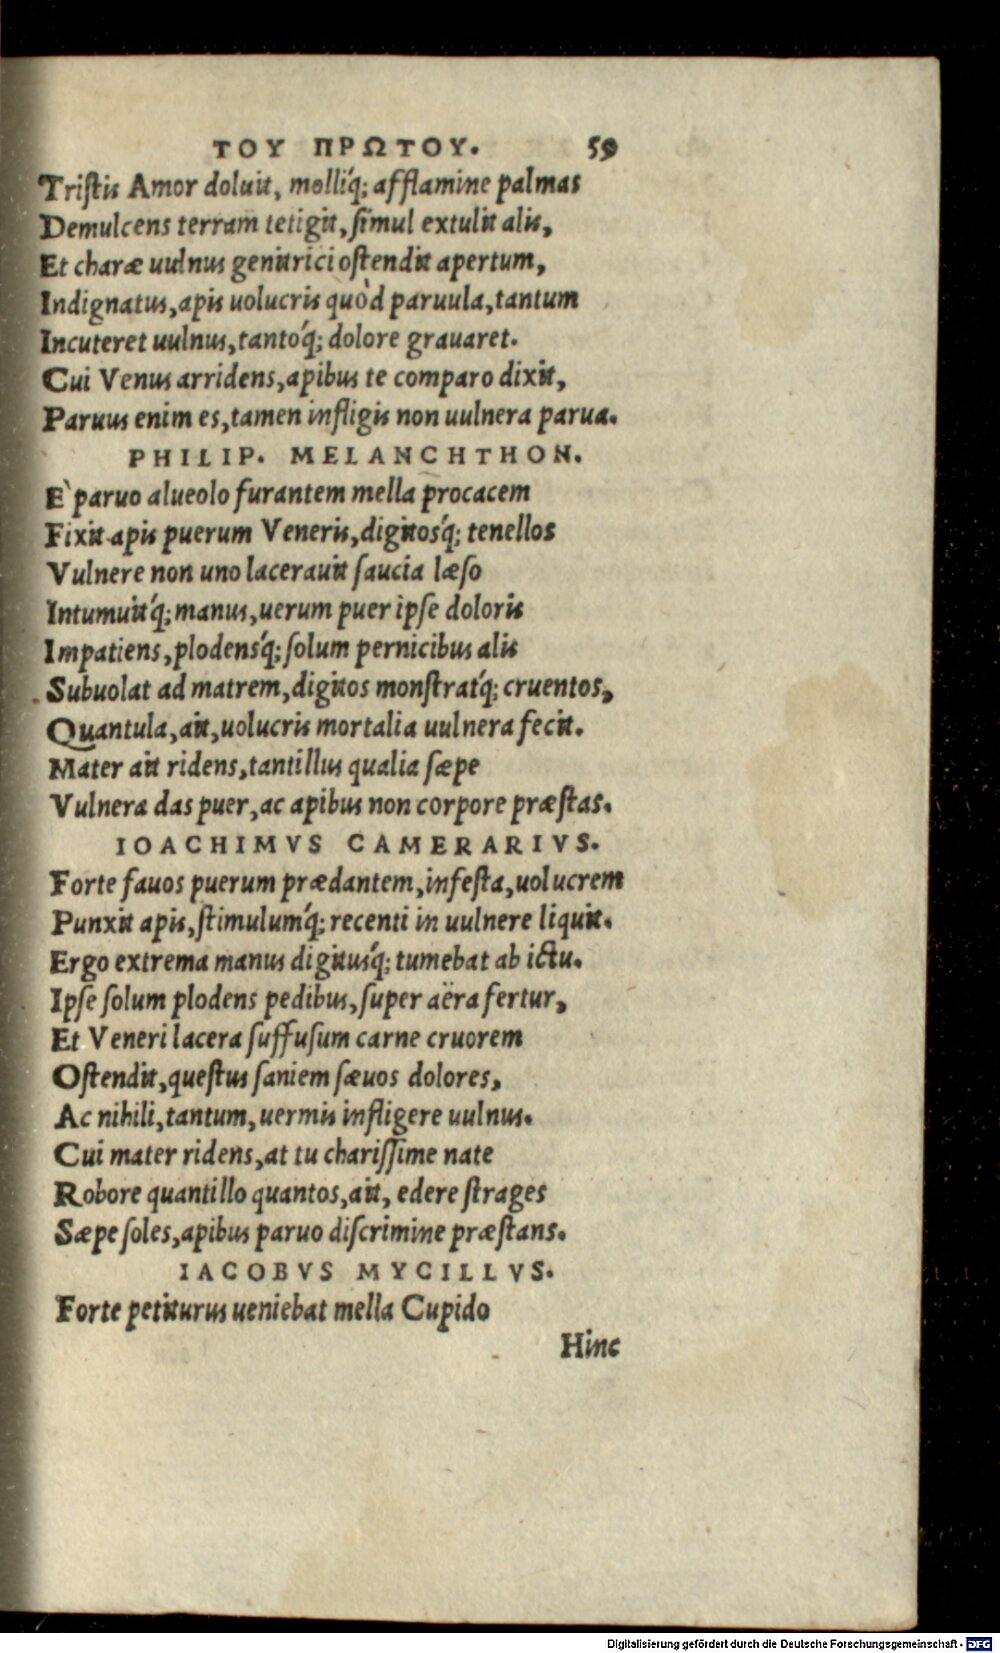 ΤΟΥ ΠΡΩΤΟΥ. 59
Triſtis Amor doluit, molliq́; afflamine palmas
Demulcens terram tetigit, ſimul extulit alis,
Et charæ uulnus genitrici oſtendit apertum,
Indignatus, apis uolucris quòd paruula, tantum
Incuteret uulnus, tantóq́; dolore grauaret.
Cui Venus arridens, apibus te comparo dixit,
Paruus enim es, tamen infligis non uulnera parua.
PHILIP. MELANCHTHON.
E` paruo alueolo furantem mella procacem
Fixit apis puerum Veneris, digitosq́; tenellos
Vulnere non uno lacerauit ſaucia læſo
Intumuitq́; manus, uerum puer ipſe doloris
Impatiens, plodensq́; ſolum pernicibus alis
Subuolat ad matrem, digitos monſtratq́; cruentos,
Quantula, ait, uolucris mortalia uulnera fecit.
Mater ait ridens, tantillus qualia ſæpe
Vulnera das puer, ac apibus non corpore præſtas.
IOACHIMVS CAMERARIVS.
Forte fauos puerum prædantem, infeſta, uolucrem
Punxit apis, ſtimulumq́; recenti in uulnere liquit.
Ergo extrema manus digitusq́; tumebat ab ictu.
Ipſe ſolum plodens pedibus, ſuper aëra fertur,
Et Veneri lacera ſuffuſum carne cruorem
Oſtendit, queſtus ſaniem ſæuos dolores,
Ac nihili, tantum, uermis infligere uulnus.
Cui mater ridens, at tu chariſſime nate
Robore quantillo quantos, ait, edere ſtrages
Sæpe ſoles, apibus paruo diſcrimine præſtans.
IACOBVS MYCILLVS.
Forte petiturus ueniebat mella Cupido
Hinc
Digitalisierung gefördert durch die Deutsche Forschungsgemeinschaft - DFG